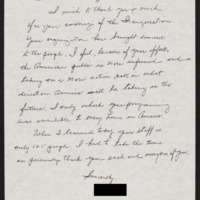 I wish to thank you so much
for your coverage of the Inauguration
Your organization has brought
to the people. I feel, because of your efforts
the American public is more informed and is
taking on a more active roll on what
direction America will be taking in the
future. I only wish your programing
was available to many more in America.
When I learned that your staff is
only 150 people I had to take the time
on January. Thank you, each and everyone of you.
Sincerely,